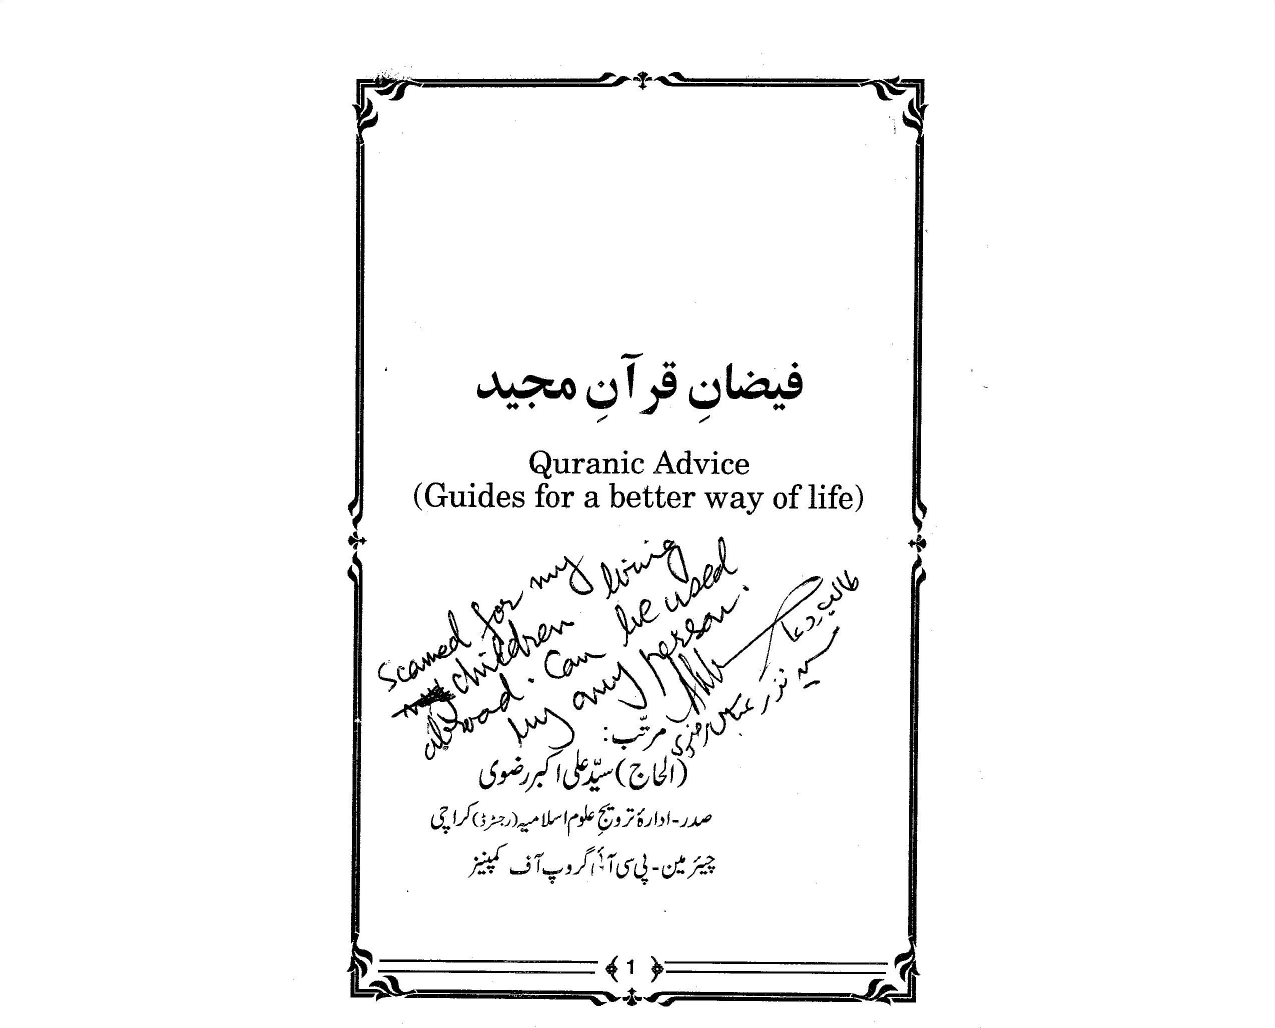 فیضانِ قرآنِ مجید
Quranic Advice
(Guides for a better way of life)
Scanned for my
children living
abroad. Can be used
by any person.
طالب دعا
سید نذر عباس رضوی
مرتّب:
(الحاج) سیّد علی اکبر رضوی
صدر-ادارۂ ترویجِ علومِ اسلامیہ (رجسٹرڈ) کراچی
چیئرمین-پی سی آئی گروپ آف کمپنیز
1